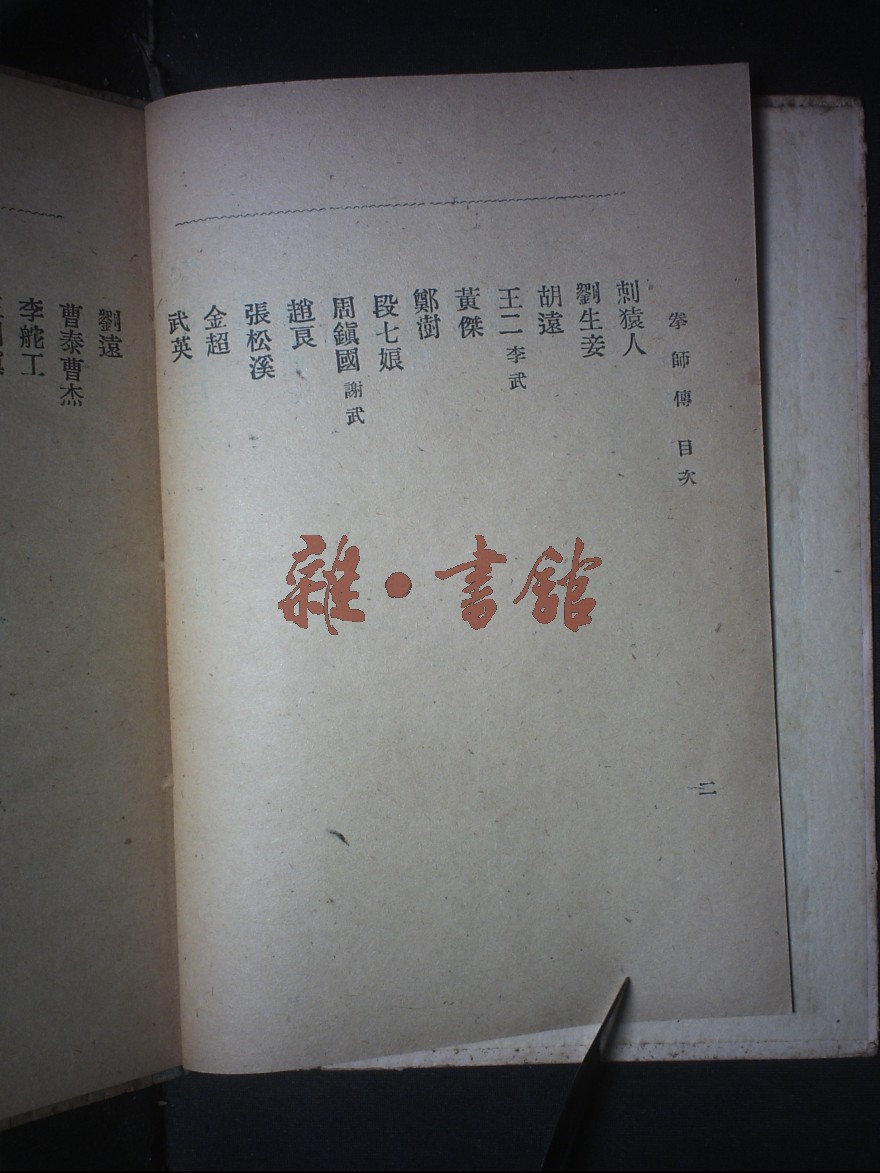 拳師傳 目次
刺猿人
劉生妾
胡遠
王二 李武
黃傑
鄭澍
段七娘
周鎭國 謝武
趙良
張松溪
金超
武英
二
劉遠
曹泰曹杰
李舵工
雜·書館